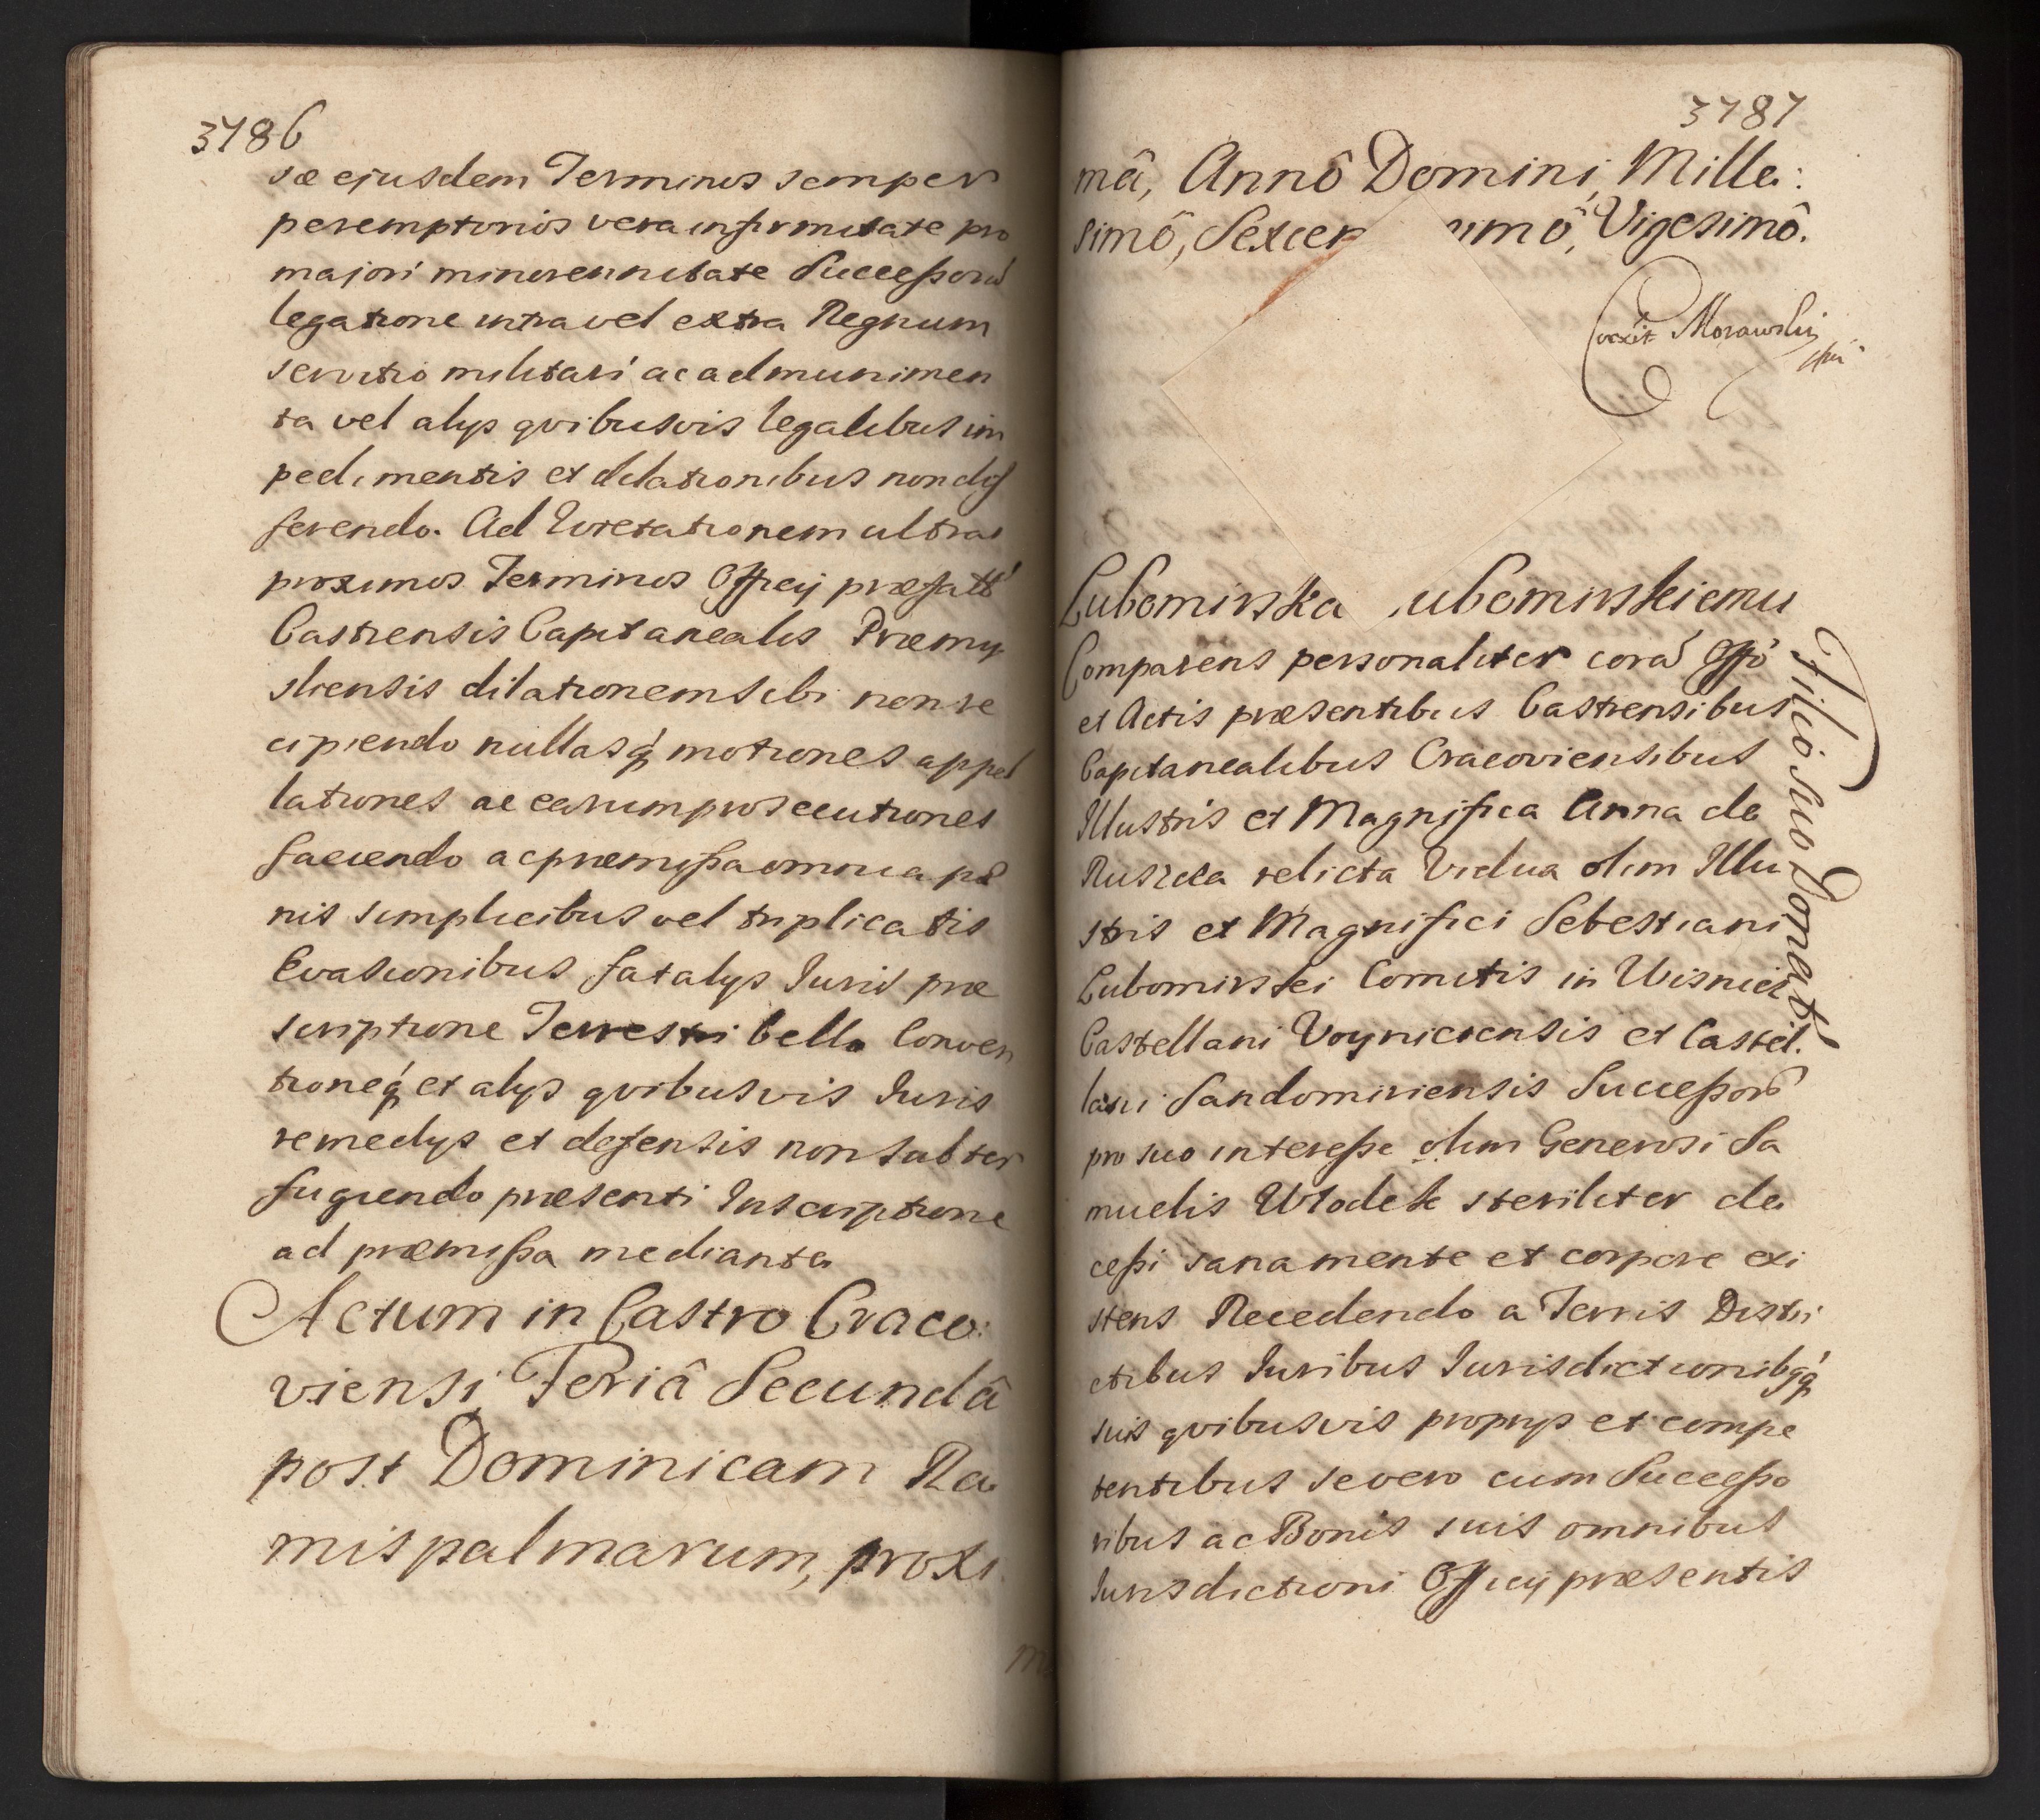 3786
sæ ejusdem Terminos semper
peremptorios vera infirmitate pro
majori minorennitate Successorū
legatione intra vel extra Regnum
servitio militari ac ad munimen
ta vel alys qvibusvis legalibus im
pedimentis et dilationibus non dif
ferendo. Ad ultra
proximos Terminos Officij præfatt
Castrensis Capitanealis Præmy
sliensis dilationem sibi non re
cipiendo nullasq́ motiones appel
lationes ac earum prosecutiones
faciendo ac præmissa omnia pæ
nis simplicibus vel triplicatis
Evasionibus fatalys Iuris præ
scriptione Terrestri bello Conven
tioneq́ et alys qvibusvis Iuris
remedys et defensis non subter
fugiendo præsenti Inscriptione
ad præmissa mediante
Actum in Castro Craco:
viensi, Feriâ Secundâ
post Dominicam Ra
mispalmarum, proxi
3787
mâ, Annô Domini, Mille:
simô, Sexcen imô, Vigesimô.
Morawski
Lubomirska ubomirskiemu
Filio suo Donat
Comparens personaliter corā Offō
et Actis præsentibus Castrensibus
Capitanealibus Cracoviensibus
Illustris et Magnifica Anna de
Ruszcza relicta Vidua olim Illu
stris et Magnifici Sebestiani
Lubomirski Comitis in Wisnicz
Castellani Voyniciensis et Castel.
lani Sandomiriensis Successorū
pro suo interesse olim Generosi Sa
muelis Wlodek steriliter de
cessi sana mente et corpore exi
stens Recedendo a Terris Distri
ctibus Iuribus Iurisdictionibgq́
suis qvibusvis proprys et compe
tentibus se vero cum Successo
ribus ac Bonis suis omnibus
Iurisdictioni Officij præsentis